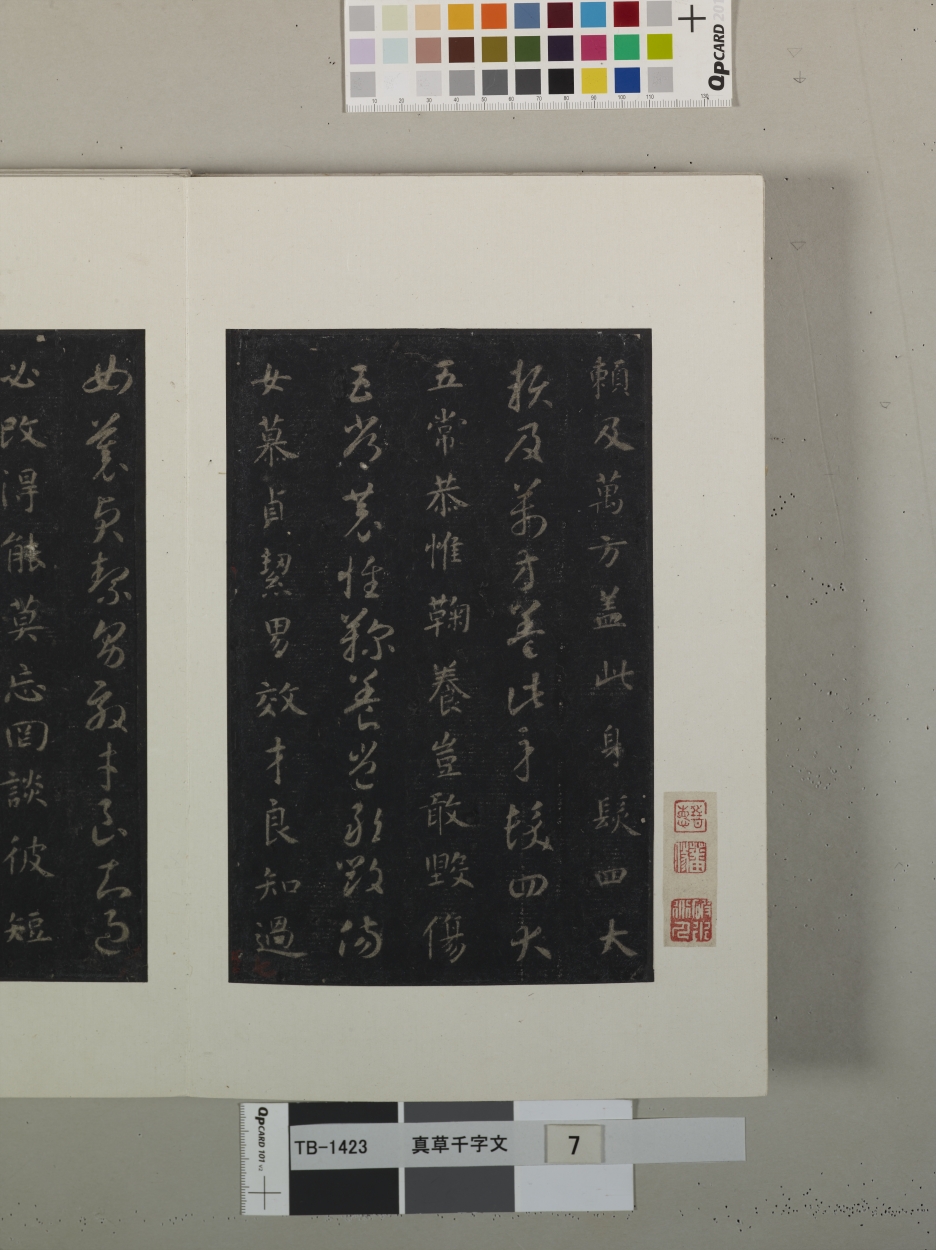 賴及萬方蓋此身髮四大
賴及萬方蓋此身髮四大
五常恭惟鞠養豈敢毀傷
五常恭惟鞠養豈敢毀傷
女慕貞絜男效才良知過
女慕貞絜男效才良知過
必改得能莫忘罔談彼短
QpCARD 201
10 20 30 40 50 60 70 80 90 100 110 130
QpCARD 101 v3
TB-1423 真草千字文 7